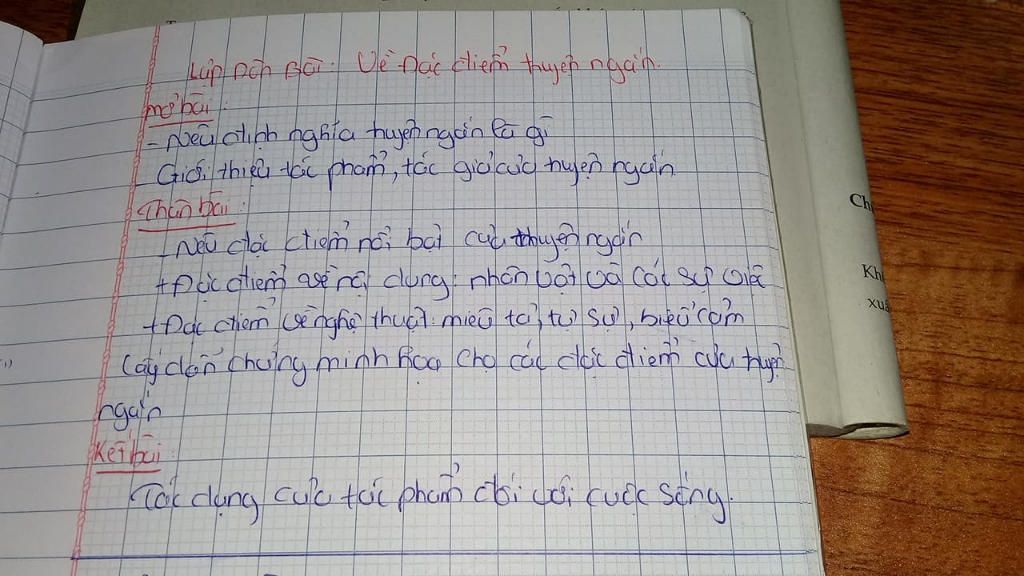 Lập Dàn Bài: Về Đặc điểm truyện ngắn.
mở bài:
- Nêu định nghĩa truyện ngắn là gì
Giới thiệu tác phẩm, tác giả của truyện ngắn
Thân bài:
- Nêu đặc điểm nổi bật của truyện ngắn
+ Đặc điểm về nội dung: nhân vật và các sự việc
+ Đặc điểm về nghệ thuật: miêu tả, tự sự, biểu cảm
Lấy dẫn chứng minh họa cho các đặc điểm của truyện
ngắn
Kết bài:
Tác dụng của tác phẩm đối với cuộc sống.
Ch
Kh
xuấ